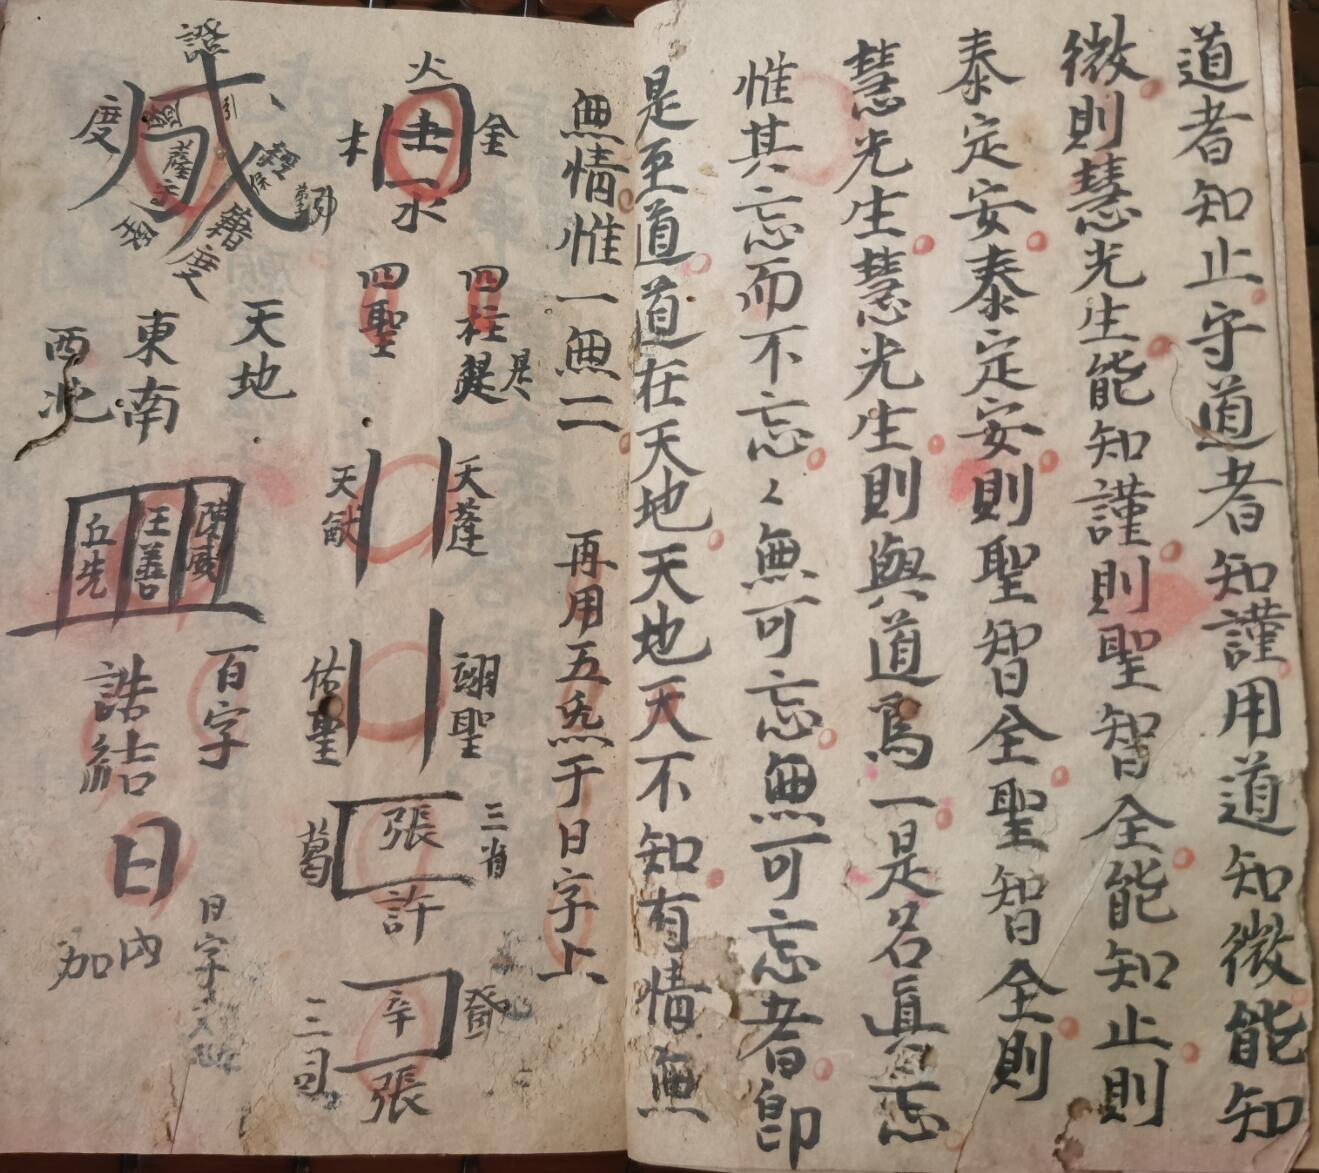 道者知止守道者知謹用道知微能知
微則慧光生能知謹則聖智全能知止則
泰定安泰定安則聖智全聖智全則
慧光生慧光生則與道爲一是名眞忘
惟其忘而不忘忘く無可忘無可忘者卽
是至道道在天地天地天不知有情無
無情惟一無二
再用五炁于日字上
火
金
木
水
四柱
是
四聖
天蓬
天猷
翊聖
佑聖
三省
張
葛
許
三司
辛
張
證
度
籍
度
天地
東南
西北
王善
丘先
百字
誥結
日
日字
內
加